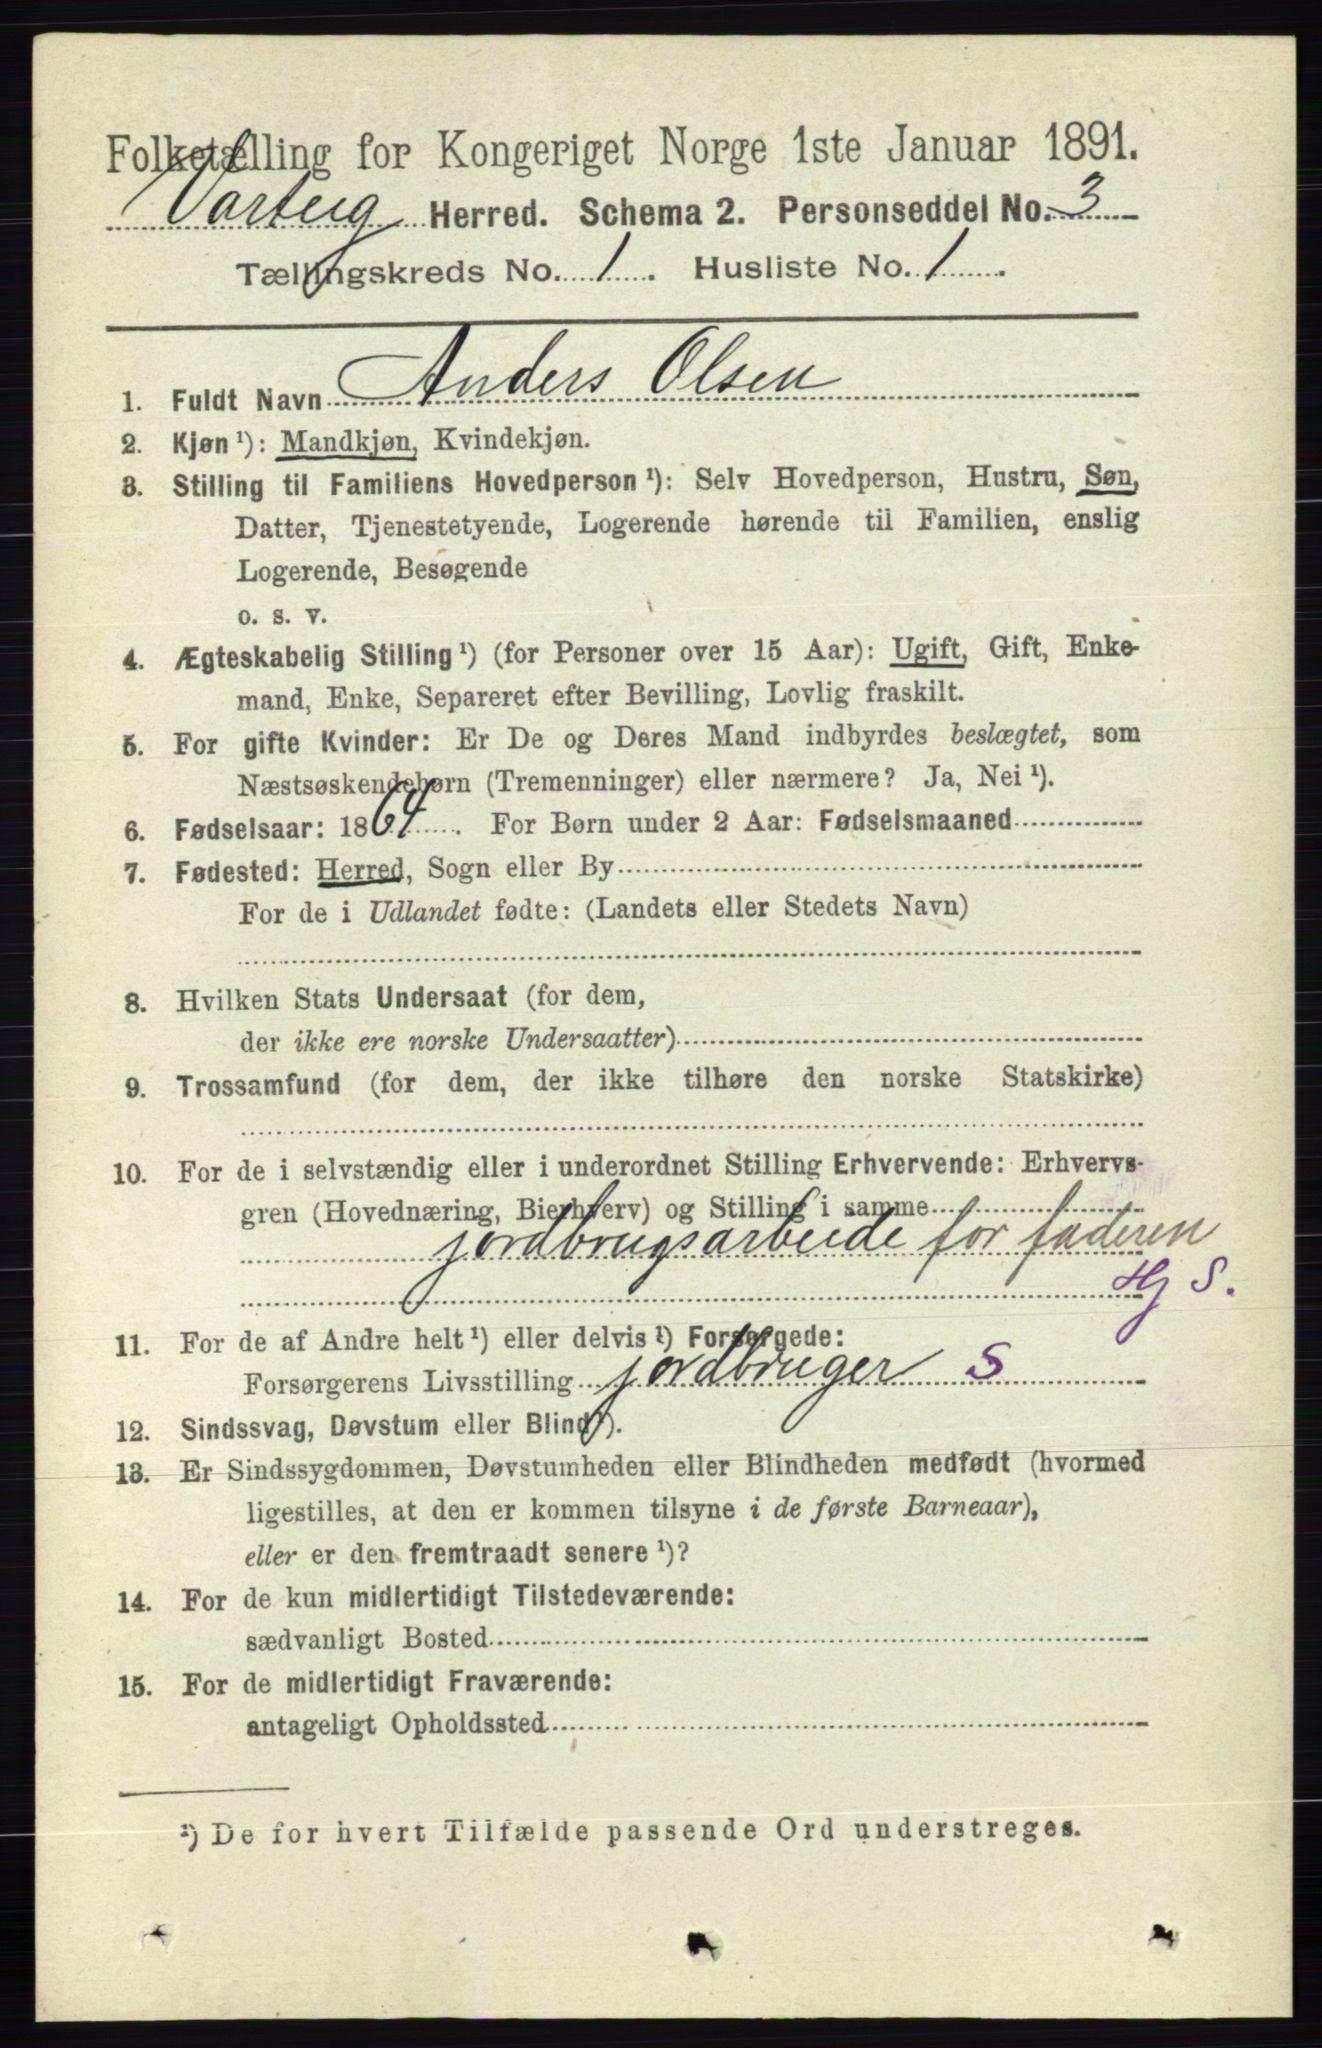 Folketælling for Kongeriget Norge 1ste Januar 1891.
Varteig Herred. Schema 2. Personseddel No. 3
Tællingskreds No. 1. Husliste No. 1.
1. Fuldt Navn Anders Olsen
2. Kjøn ¹): Mandkjøn, Kvindekjøn.
3. Stilling til Familiens Hovedperson ¹): Selv Hovedperson, Hustru, Søn,
Datter, Tjenestetyende, Logerende hørende til Familien, enslig
Logerende, Besøgende
o. s. v.
4. Ægteskabelig Stilling ¹) (for Personer over 15 Aar): Ugift, Gift, Enke-
mand, Enke, Separeret efter Bevilling, Lovlig fraskilt.
5. For gifte Kvinder: Er De og Deres Mand indbyrdes beslægtet, som
Næstsøskendebørn (Tremenninger) eller nærmere? Ja, Nei ¹).
6. Fødselsaar: 1864. For Børn under 2 Aar: Fødselsmaaned
7. Fødested: Herred, Sogn eller By
For de i Udlandet fødte: (Landets eller Stedets Navn)
8. Hvilken Stats Undersaat (for dem,
der ikke ere norske Undersaatter)
9. Trossamfund (for dem, der ikke tilhøre den norske Statskirke)
10. For de i selvstændig eller i underordnet Stilling Erhvervende: Erhvervs-
gren (Hovednæring, Bierhverv) og Stilling i samme
jordbrugsarbeide for faderen
Hj S.
11. For de af Andre helt ¹) eller delvis ¹) Forsørgede:
Forsørgerens Livsstilling jordbruger S
12. Sindssvag, Døvstum eller Blind ¹).
13. Er Sindssygdommen, Døvstumheden eller Blindheden medfødt (hvormed
ligestilles, at den er kommen tilsyne i de første Barneaar),
eller er den fremtraadt senere ¹)?
14. For de kun midlertidigt Tilstedeværende:
sædvanligt Bosted
15. For de midlertidigt Fraværende:
antageligt Opholdssted
¹) De for hvert Tilfælde passende Ord understreges.